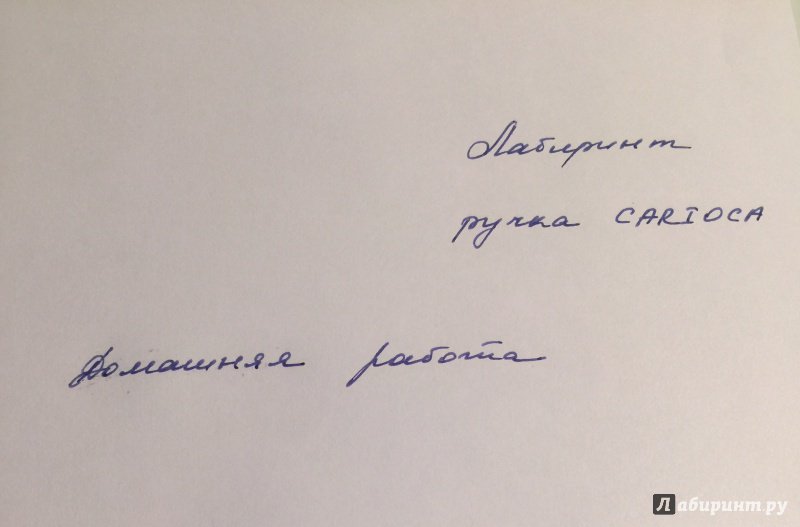 Лабиринт
ручка CARIOCA
Домашняя работа
Лабиринт.ру